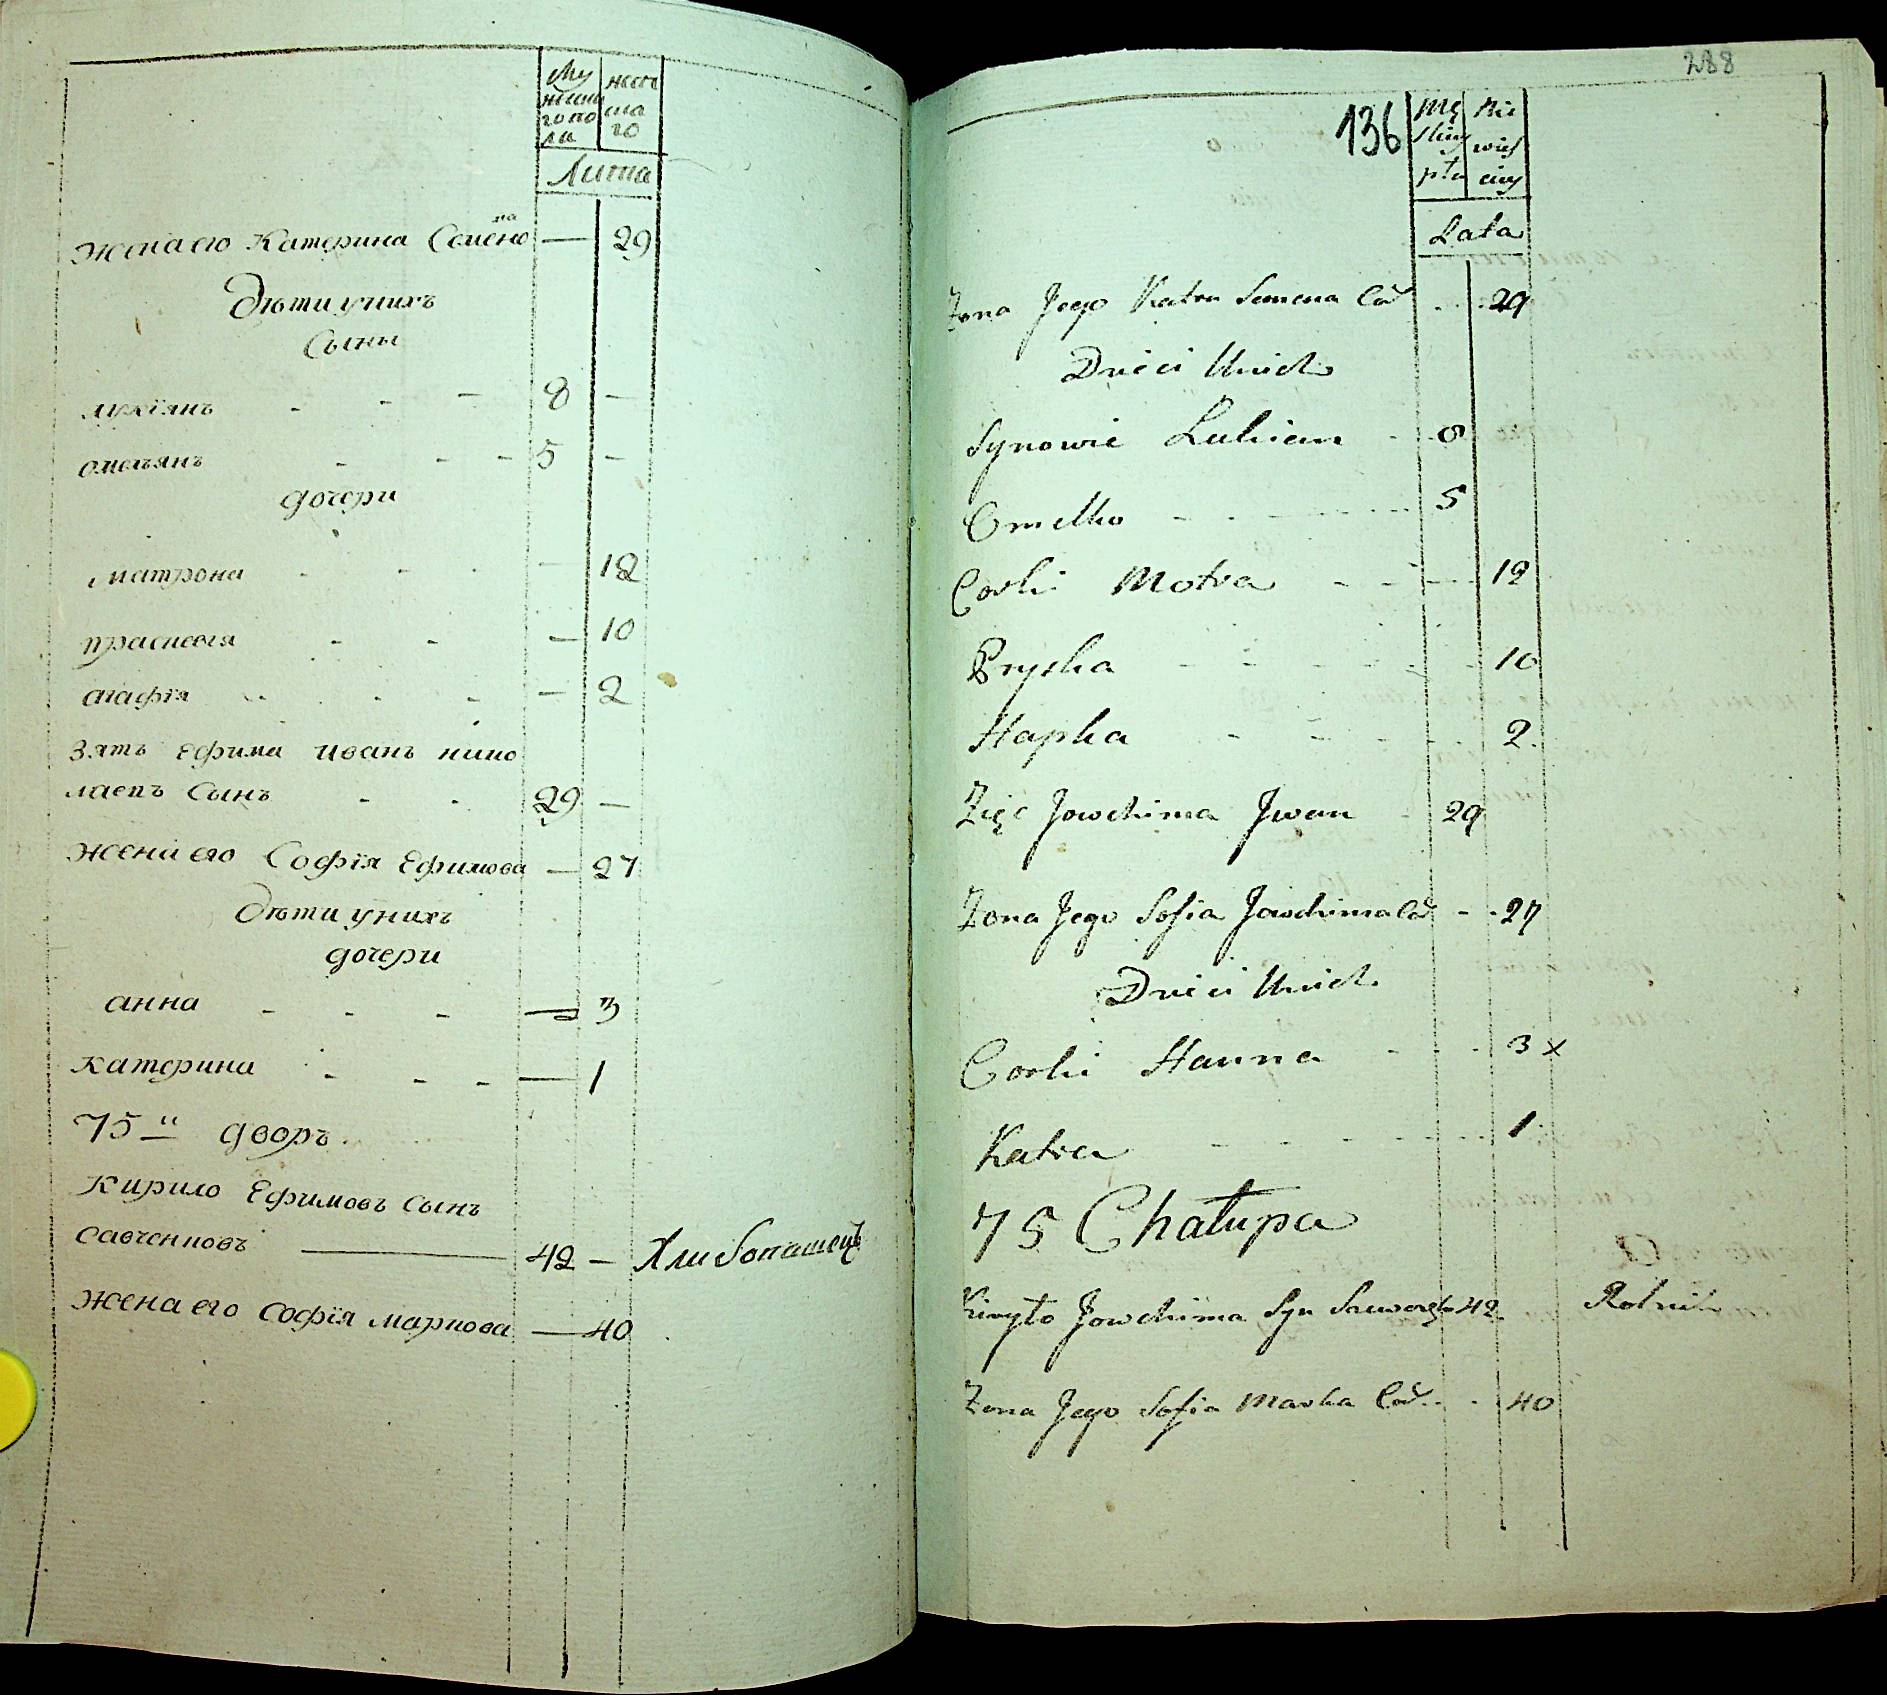 Му
жеска
го по
ла
женска
го
Лита
жена его Катерина Семено
ва
— 29
Дѣти у нихъ
Сыны
лукіянъ - - - 8 —
омельянъ - - - 5 —
дочери
матрона - - - — 12
прасковія - - — 10
агафія - - - — 2
Зять Ефима иванъ нико
лаевъ сынъ - - 29 —
жена его Софія Ефимова — 27
Дѣти у нихъ
дочери
анна - - - — 3
катерина - - - — 1
75 й дворъ
кирило Ефимовъ сынъ
савченковъ — 42 — Хлибопашецъ
жена его софія маркова — 40
288
136
Mę
skiey
płci
Nie
wieś
ciey
Lata
Żona Jego Katra Semena Cór 29
Dzieci Unich
Synowie Lukian - 8
Omelko - - - 5
Corki Motra - - - 12
Pryska - - - 10
Hapka - - - 2
Zięć Jowchima Jwan - 29
Żona Jego Sofia Jowchima Cór - 27
Dzieci Unich
Corki Hanna - - 3 x
Katra - - - 1
75 Chałupa
Kiryło Jowchima Syn 42 Rolnik
Żona Jego Sofia Marka Cór - 40